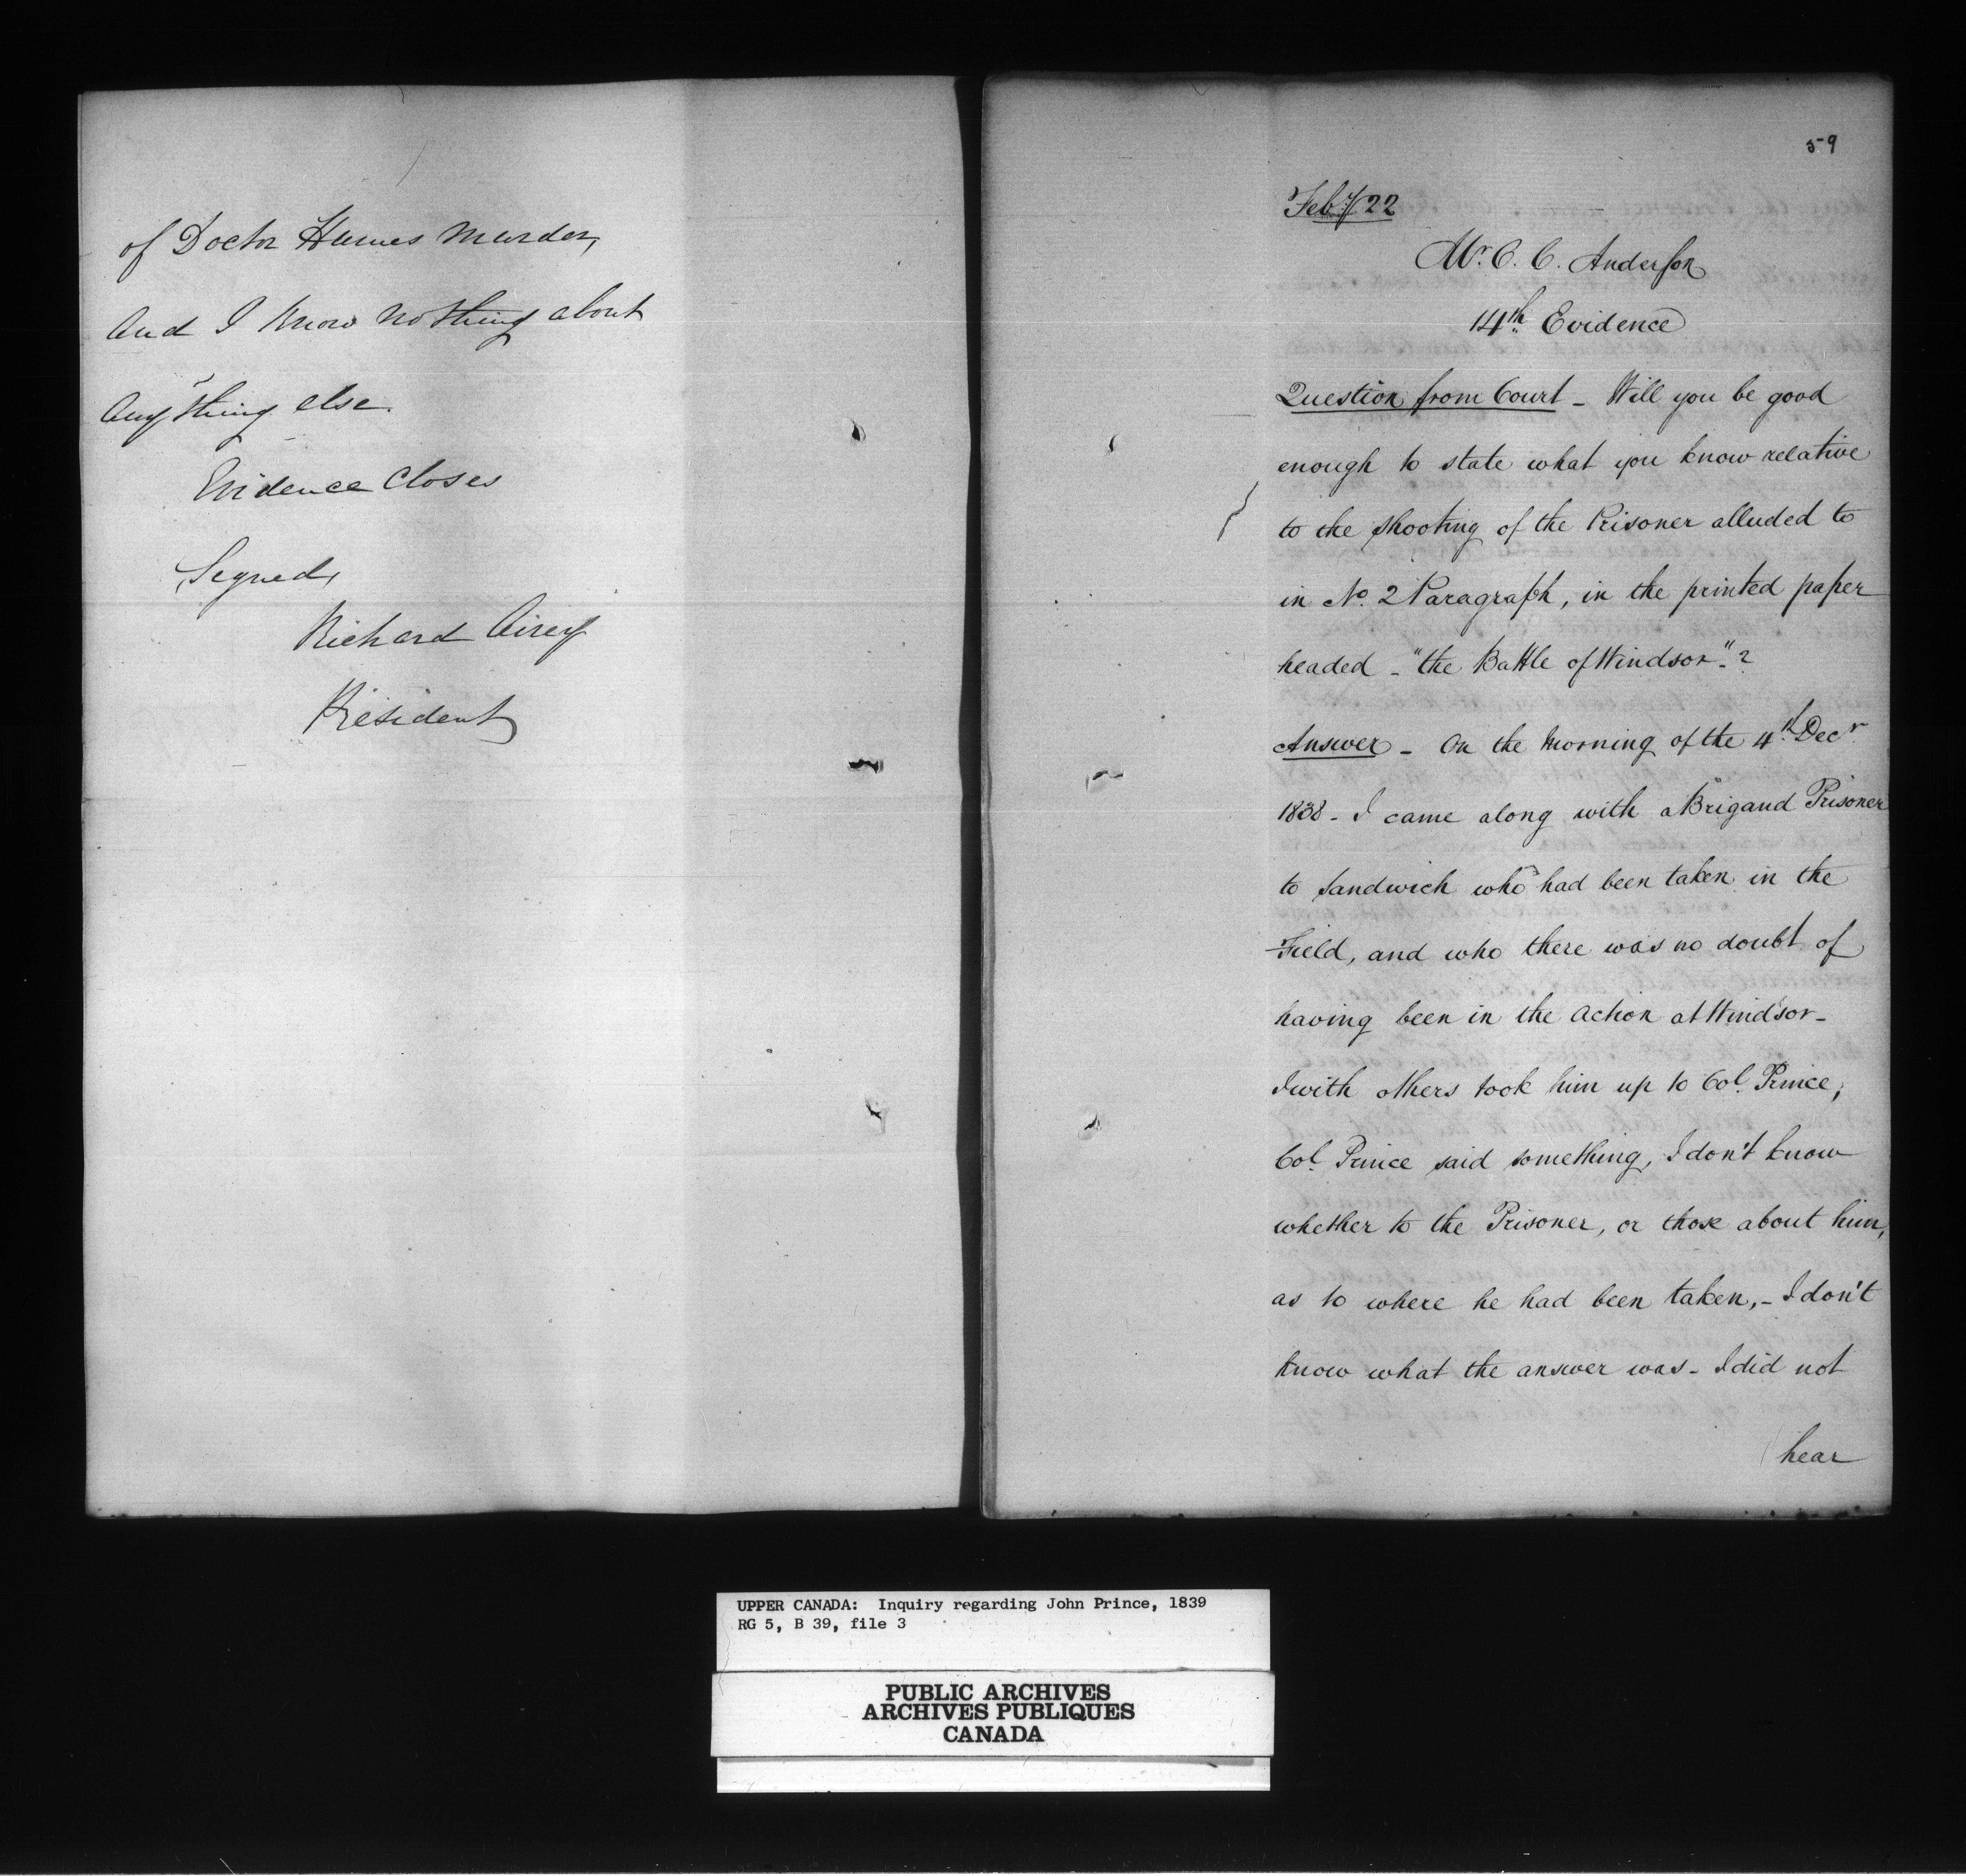 of Doctor Humes Murder,
And I Know nothing about
Anything else.
Evidence Closes
Signed,
Richard Airey
President
59
Feby 22
Mr. C. C. Anderson
14th. Evidence
Question from Court - Will you be good
enough to state what you know relative
to the shooting of the Prisoner alluded to
in No. 2 Paragraph, in the printed paper
headed - "the Battle of Windsor"?
Answer - On the Morning of the 4th Decr.
1838 - I came along with a Brigand Prisoner
to Sandwich who had been taken in the
Field, and who there was no doubt of
having been in the action at Windsor -
I with others took him up to Col. Prince,
Col. Prince said something, I don't know
whether to the Prisoner, or those about him,
as to where he had been taken, - I don't
know what the answer was - I did not
hear
UPPER CANADA: Inquiry regarding John Prince, 1839
RG 5, B 39, file 3
PUBLIC ARCHIVES
ARCHIVES PUBLIQUES
CANADA